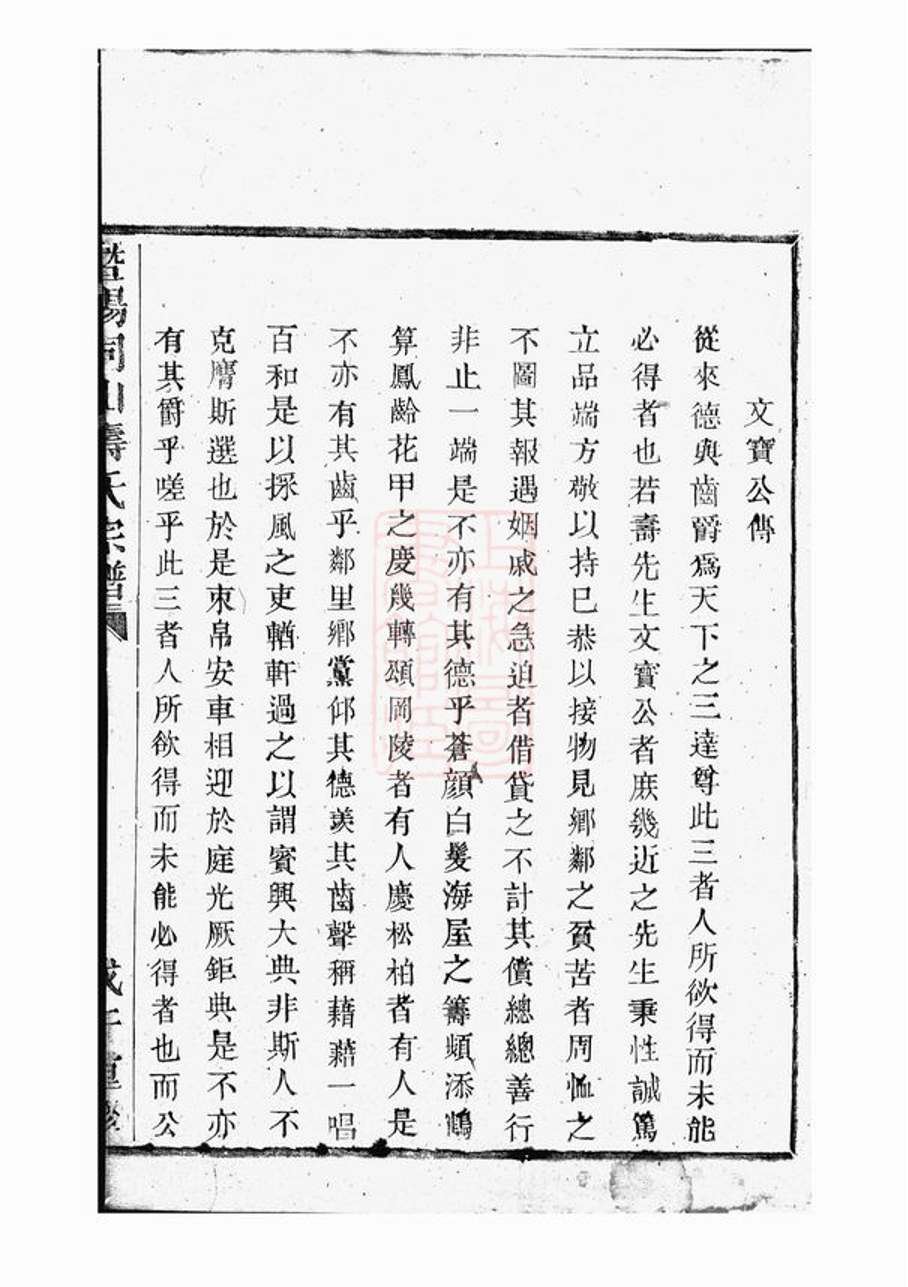 文寶公傳
從來德與齒爵爲天下之三達尊此三者人所欲得而未能
必得者也若壽先生文寶公者庶幾近之先生秉性誠篤
立品端方敬以持巳恭以接物見鄉鄰之貧苦者周恤之
不圖其報遇姻戚之急迫者借貸之不計其償總總善行
非止一端是不亦有其德乎蒼顔白髮海屋之籌頻添鶴
算鳳齡花甲之慶幾轉頌岡陵者有人慶松柏者有人是
不亦有其齒乎鄰里鄉黨仰其德羨其齒聲稱藉藉一唱
百和是以採風之吏輶軒過之以謂賓興大典非斯人不
克膺斯選也於是束帛安車相迎於庭光厥鉅典是不亦
有其爵乎嗟乎此三者人所欲得而未能必得者也而公
暨陽同山壽氏宗譜
戊午重修